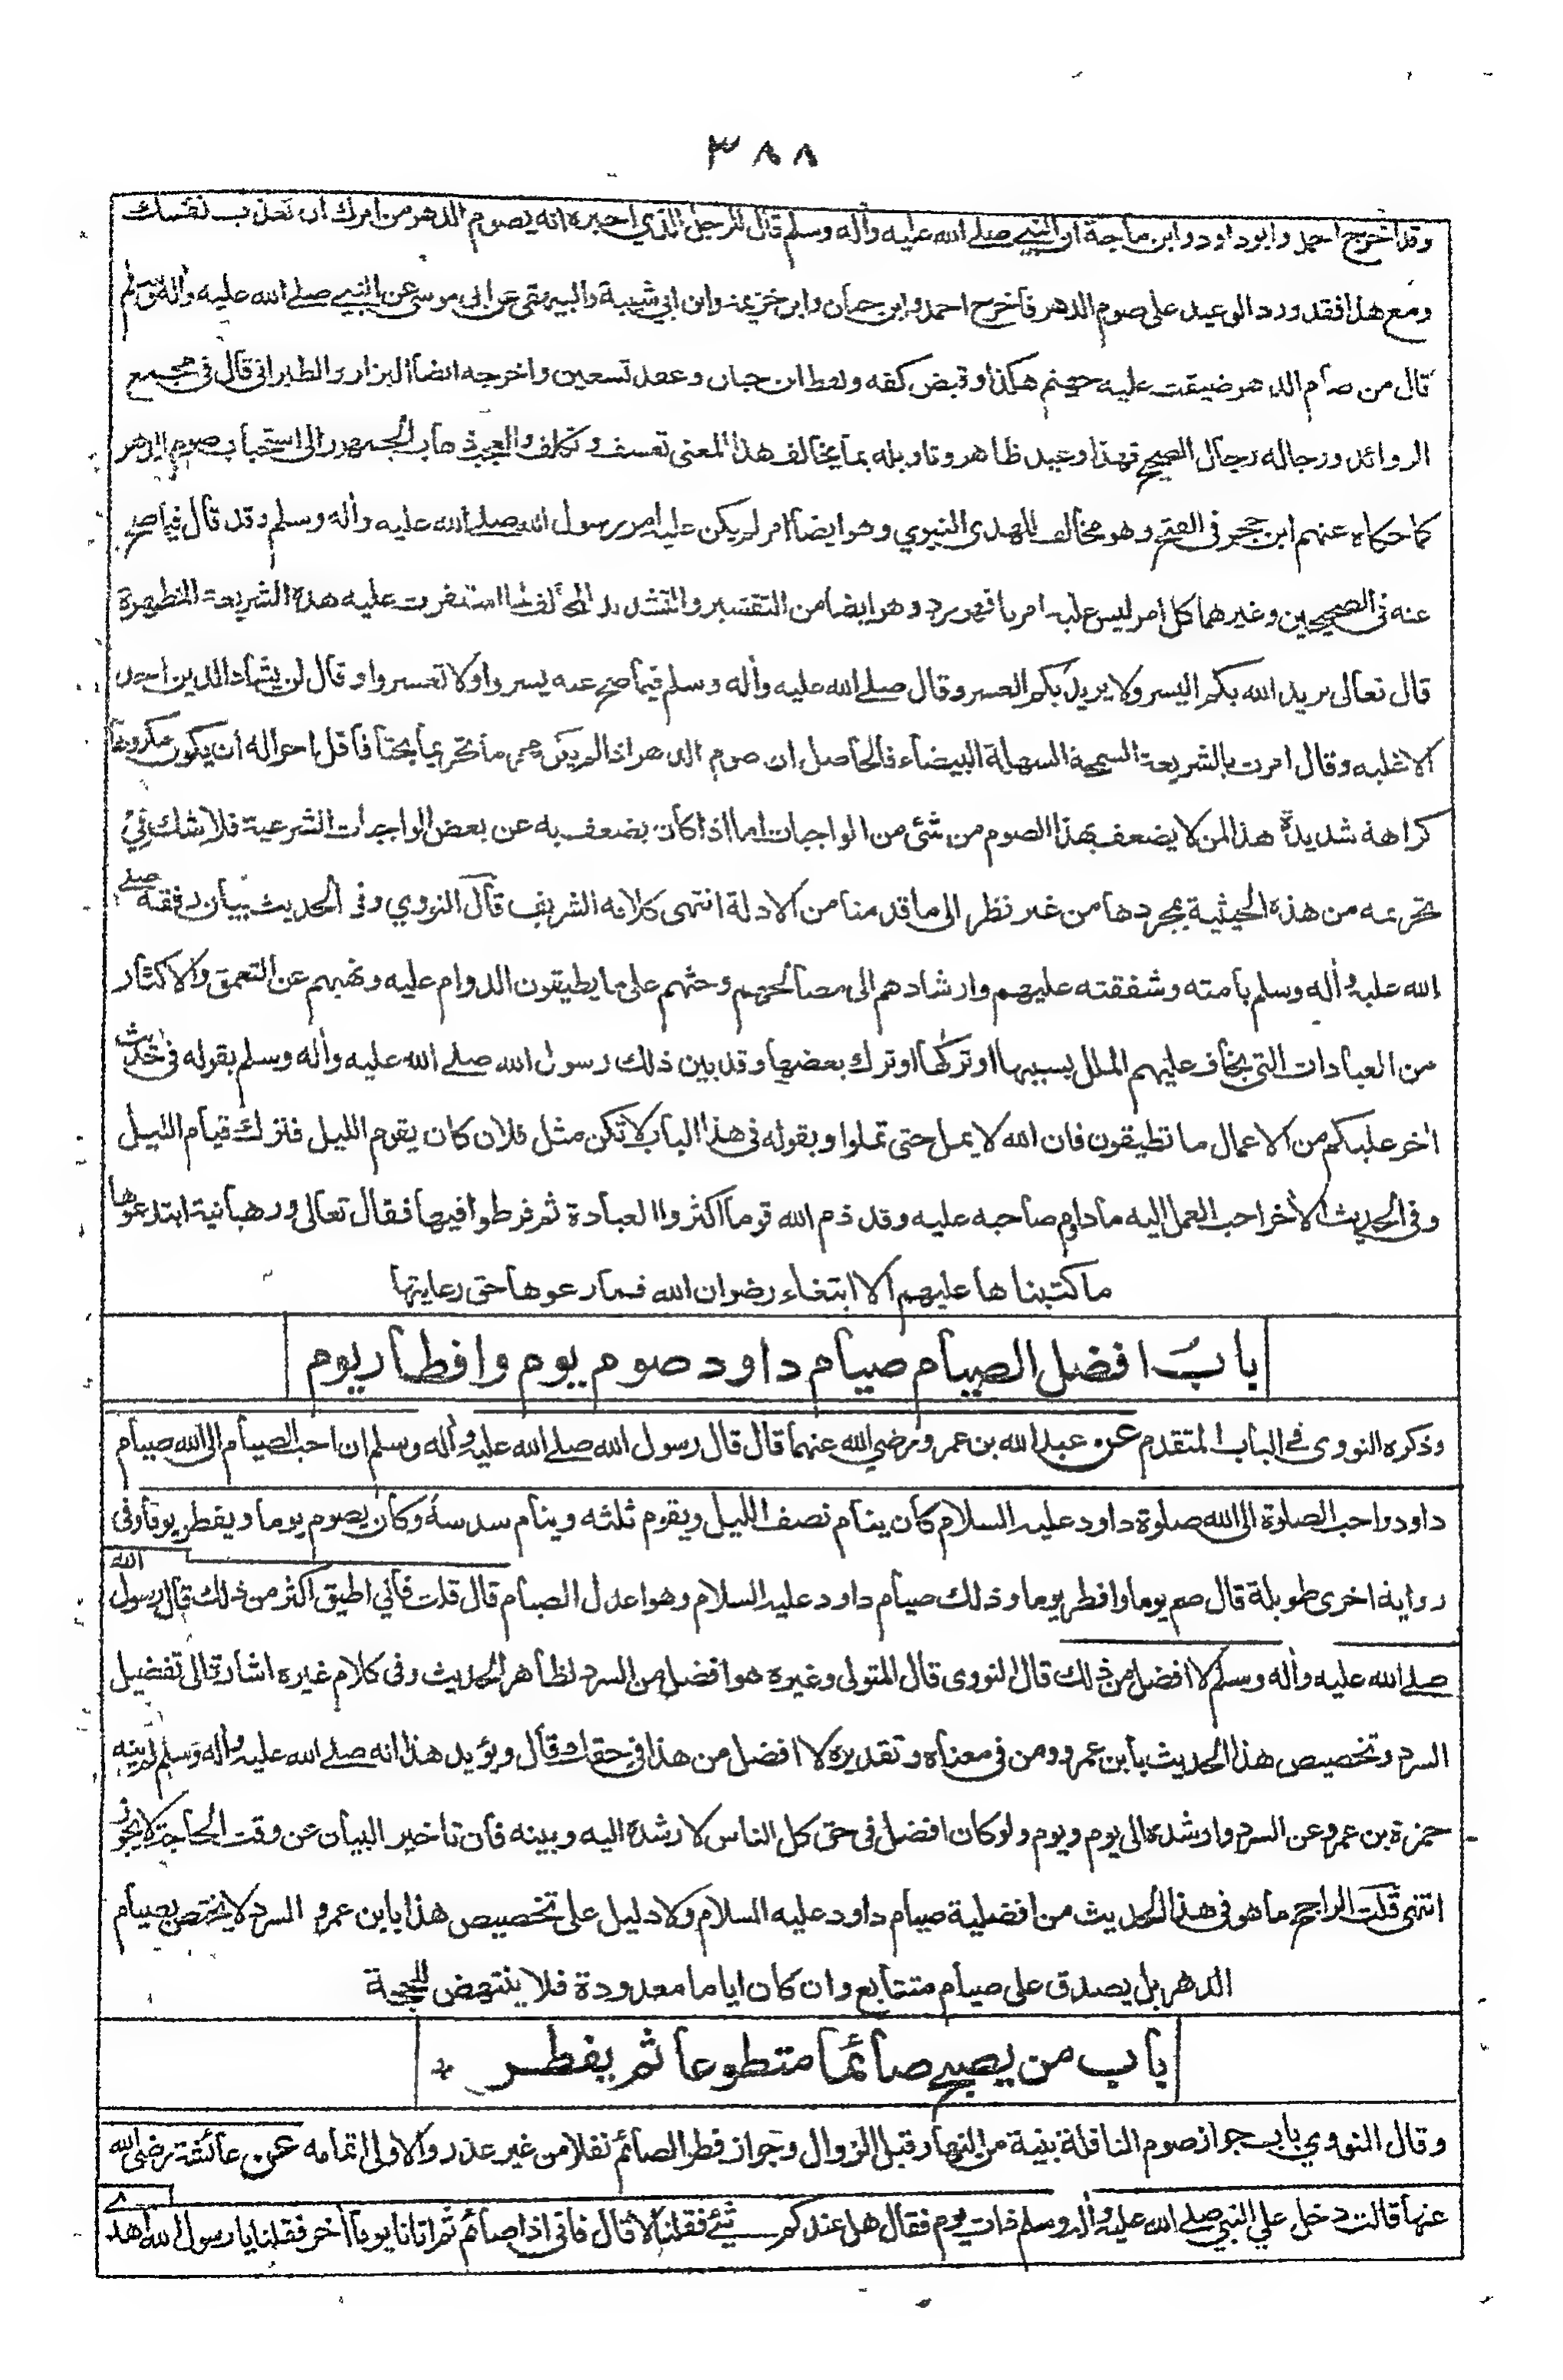 ٣٨٨
وقد اخرج احمد وابوداود وابن ماجة ان النبي صلى الله عليه وأله وسلم قال للرجل الذي اخبره انه يصوم الدهر من امرك ان تعذب نفسك
ومع هذا فقد ورد الوعيد على صوم الدهر فاخرج احمد وابن حبان وابن خزيمة وابن ابي شيبة والبيهقى عن ابى موسى عن النبي صلى الله عليه وأله وسلم
قال من صام الدهر ضيقت عليه جهنم هكذا وقبض كفه ولفظ ابن حبان وعقد تسعين واخرجه ايضا البزار والطبرانى قال فى مجمع
الزوائد ورجاله رجال الصحيح فهذا وعيد ظاهر وتاويله بما يخالف هذا المعنى تعسف وتكلف والعجب ذهاب الجمهور الى استحباب صوم الدهر
كما حكاه عنهم ابن حجر فى الفتح وهو مخالف للهدى النبوي وهو ايضا امر لم يكن عليه امر رسول الله صلى الله عليه وأله وسلم وقد قال فيما صح
عنه فى الصحيحين وغيرهما كل امر ليس عليه امرنا فهو رد وهو ايضا من التعسير والتشديد المخالف لما استقرت عليه هذه الشريعة المطهرة
قال تعالى يريد الله بكم اليسر ولا يريد بكم العسر وقال صلى الله عليه وأله وسلم فيما صح عنه يسروا ولا تعسروا وقال لن يشاد الدين احد
الا غلبه وقال امرت بالشريعة السمحة السهلة البيضاء فالحاصل ان صوم الدهر اذا لم يكن محرما تحريما بحتا فاقل احواله ان يكون مكروها
كراهة شديدة هذا لمن لا يضعف بهذا الصوم من شئ من الواجبات اما اذا كان يضعف به عن بعض الواجبات الشرعية فلا شك في
تحريمه من هذه الحيثية بمجردها من غير نظر الى ما قدمنا من الادلة انتهى كلامه الشريف قال النووي وفى الحديث بيان رفقه صلى
الله عليه وأله وسلم بامته وشفقته عليهم وارشادهم الى مصالحهم وحثهم على ما يطيقون الدوام عليه ونهيهم عن التعمق والاكثار
من العبادات التى يخاف عليهم الملل بسببها او تركها او ترك بعضها وقد بين ذلك رسول الله صلى الله عليه وأله وسلم بقوله فى حديث
أخر عليكم من الاعمال ما تطيقون فان الله لا يمل حتى تملوا وبقوله فى هذا الباب لا تكن مثل فلان كان يقوم الليل فترك قيام الليل
وفى الحديث الأخر احب العمل اليه ما داوم صاحبه عليه وقد ذم الله قوما اكثروا العبادة ثم فرطوا فيها فقال تعالى ورهبانية ابتدعوها
ما كتبناها عليهم الا ابتغاء رضوان الله فما رعوها حق رعايتها
باب افضل الصيام صيام داود صوم يوم وافطار يوم
وذكره النووى في الباب المتقدم عن عبد الله بن عمرو رضي الله عنهما قال قال رسول الله صلى الله عليه وأله وسلم ان احب الصيام الى الله صيام
داود واحب الصلوة الى الله صلوة داود عليه السلام كان ينام نصف الليل ويقوم ثلثه وينام سدسه وكان يصوم يوما ويفطر يوما وفى
رواية اخرى طويلة قال صم يوما وافطر يوما وذلك صيام داود عليه السلام وهو اعدل الصيام قال قلت فاني اطيق اكثر من ذلك قال رسول الله
صلى الله عليه وأله وسلم لا افضل من ذلك قال النووى قال المتولى وغيره هو افضل من السرد لظاهر الحديث وفى كلام غيره اشارة الى تفضيل
السرد وتخصيص هذا الحديث بابن عمرو ومن فى معناه وتقديره لا افضل من هذا في حقك وقال ويؤيد هذا انه صلى الله عليه وأله وسلم لم ينه
حمزة بن عمرو عن السرد وارشده الى يوم ويوم ولو كان افضل فى حق كل الناس لارشده اليه وبينه فان تاخير البيان عن وقت الحاجة لا يجوز
انتهى قلت الراجح ما هو فى هذا الحديث من افضلية صيام داود عليه السلام ولا دليل على تخصيص هذا بابن عمرو السرد لا يختص بصيام
الدهر بل يصدق على صيام متتابع وان كان اياما معدودة فلا ينتهض للحجة
باب من يصبح صائما متطوعا ثم يفطر
وقال النووي باب جواز صوم النافلة بنية من النهار قبل الزوال وجواز فطر الصائم نفلا من غير عذر والاولى اتمامه عن عائشة رضى الله
عنها قالت دخل علي النبي صلى الله عليه وأله وسلم ذات يوم فقال هل عندكم شئ فقلنا لا قال فانى اذا صائم ثم اتانا يوما أخر فقلنا يا رسول الله اهدى